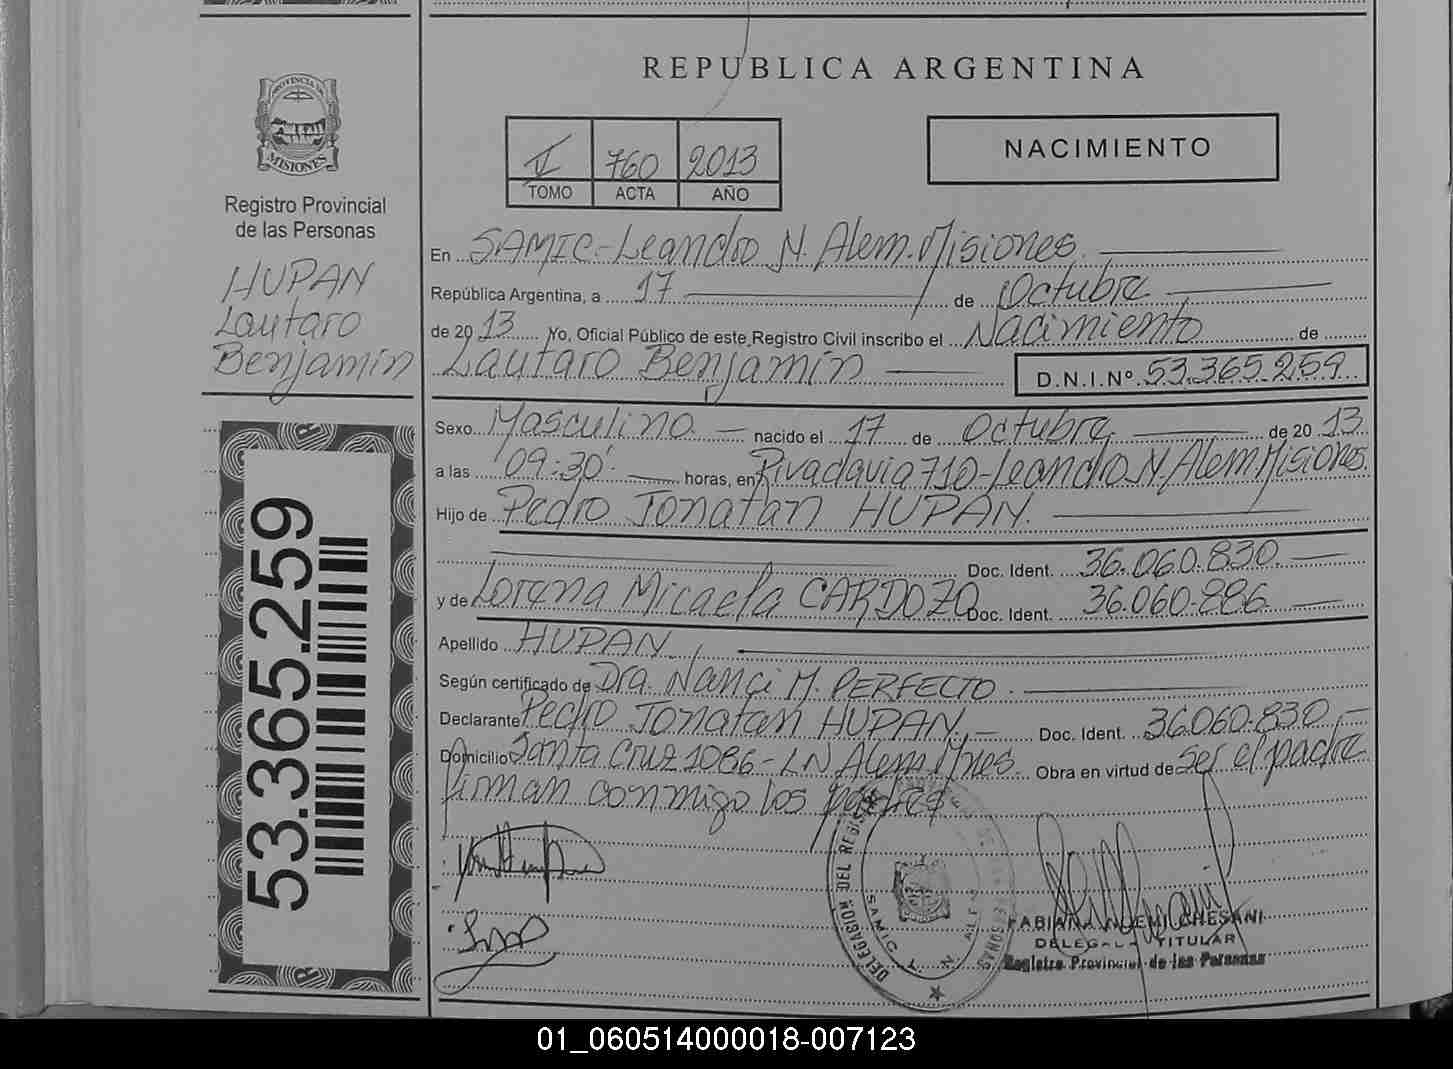 PROVINCIA DE
MISIONES
Registro Provincial
de las Personas
HUPAN
Lautaro
Benjamín
53.365.259
REPUBLICA ARGENTINA
760 2013
TOMO ACTA AÑO
NACIMIENTO
En SAMIC-Leandro N. Alem-Misiones
República Argentina, a 17 de Octubre
de 2013 Yo, Oficial Público de este Registro Civil inscribo el Nacimiento de
Lautaro Benjamín D.N.I.Nº 53.365.259
Sexo Masculino nacido el 17 de Octubre de 2013
a las 09:30 horas, en Rivadavia 710-Leandro N. Alem. Misiones.
Hijo de Pedro Jonatan HUPAN.
Doc. Ident. 36.060.830
y de Lorena Micaela CARDOZO Doc. Ident. 36.060.886
Apellido HUPAN
Según certificado de Dra. Nanci M. PERFECTO.
Declarante Pedro Jonatan HUPAN. Doc. Ident. 36.060.830
Domicilio Santa Cruz 1086-LN Alem Mnes. Obra en virtud de ser el padre
firman conmigo los padres
DELEGACION DEL REGISTRO DE LAS PERSONAS
SAMIC L. N. ALEM
FABIANA NOEMI CHESANI
DELEGADA TITULAR
Registro Provincial de las Personas
01_060514000018-007123